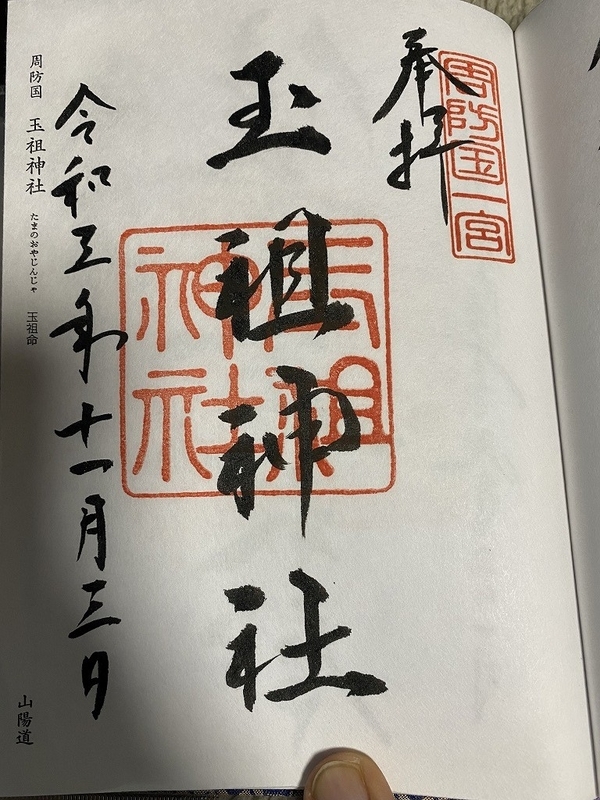 周防国一宮
奉拝
玉祖神社
玉祖神社
令和三年十一月三日
周防国 玉祖神社 たまのおやじんじゃ 玉祖命
山陽道